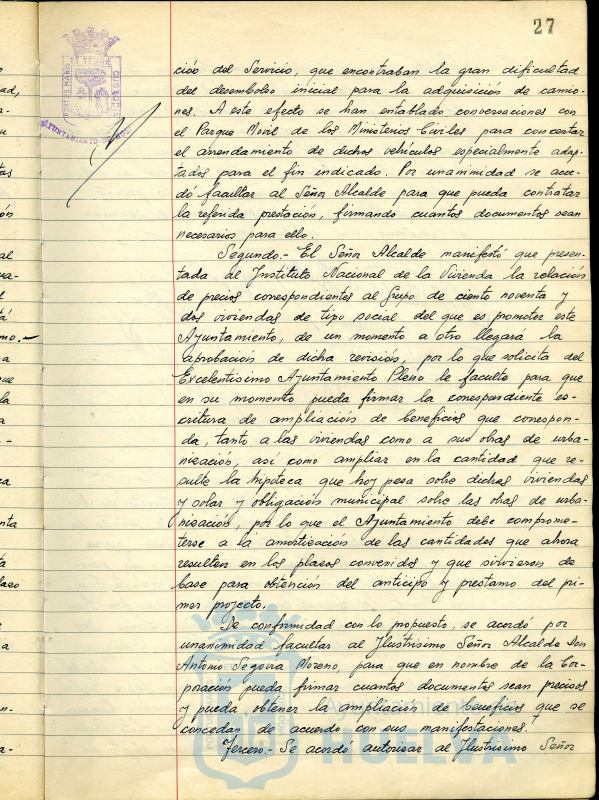 27
PORTUS MARIS ET TERRAE CUSTODIA
AYUNTAMIENTO DE HUELVA
ción del Servicio, que encontraban la gran dificultad
del desembolso inicial para la adquisición de camio-
nes. A este efecto se han entablado conversaciones con
el Parque Movil de los Ministerios Civiles para concertar
el arrendamiento de dichos vehículos especialmente adap-
tados para el fin indicado. Por unanimidad se acor-
dó facultar al Señor Alcalde para que pueda contratar
la referida prestación, firmando cuantos documentos sean
necesarios para ello.
Segundo.- El Señor Alcalde manifestó que presen-
tada al Instituto Nacional de la Vivienda la relación
de precios correspondientes al Grupo de ciento noventa y
dos viviendas de tipo social del que es promotor este
Ayuntamiento, de un momento a otro llegará la
aprobación de dicha revisión, por lo que solicita del
Excelentísimo Ayuntamiento Pleno le faculte para que
en su momento pueda firmar la correspondiente es-
critura de ampliación de beneficios que correspon-
da, tanto a las viviendas como a sus obras de urba-
nización, así como ampliar en la cantidad que re-
sulte la hipoteca que hoy pesa sobre dichas viviendas
y solar y obligación municipal sobre las obras de urba-
nización, por lo que el Ayuntamiento debe comprome-
terse a la amortización de las cantidades que ahora
resulten en los plazos convenidos y que sirvieron de
base para obtención del anticipo y prestamo del pri-
mer proyecto.
De conformidad con lo propuesto, se acordó por
unanimidad facultar al Ilustrísimo Señor Alcalde Don
Antonio Segovia Moreno, para que en nombre de la Cor-
poración pueda firmar cuantos documentos sean precisos
y pueda obtener la ampliación de beneficios que se
concedan de acuerdo con sus manifestaciones.
Tercero.- Se acordó autorizar al Ilustrísimo Señor
Ayuntamiento
HUELVA